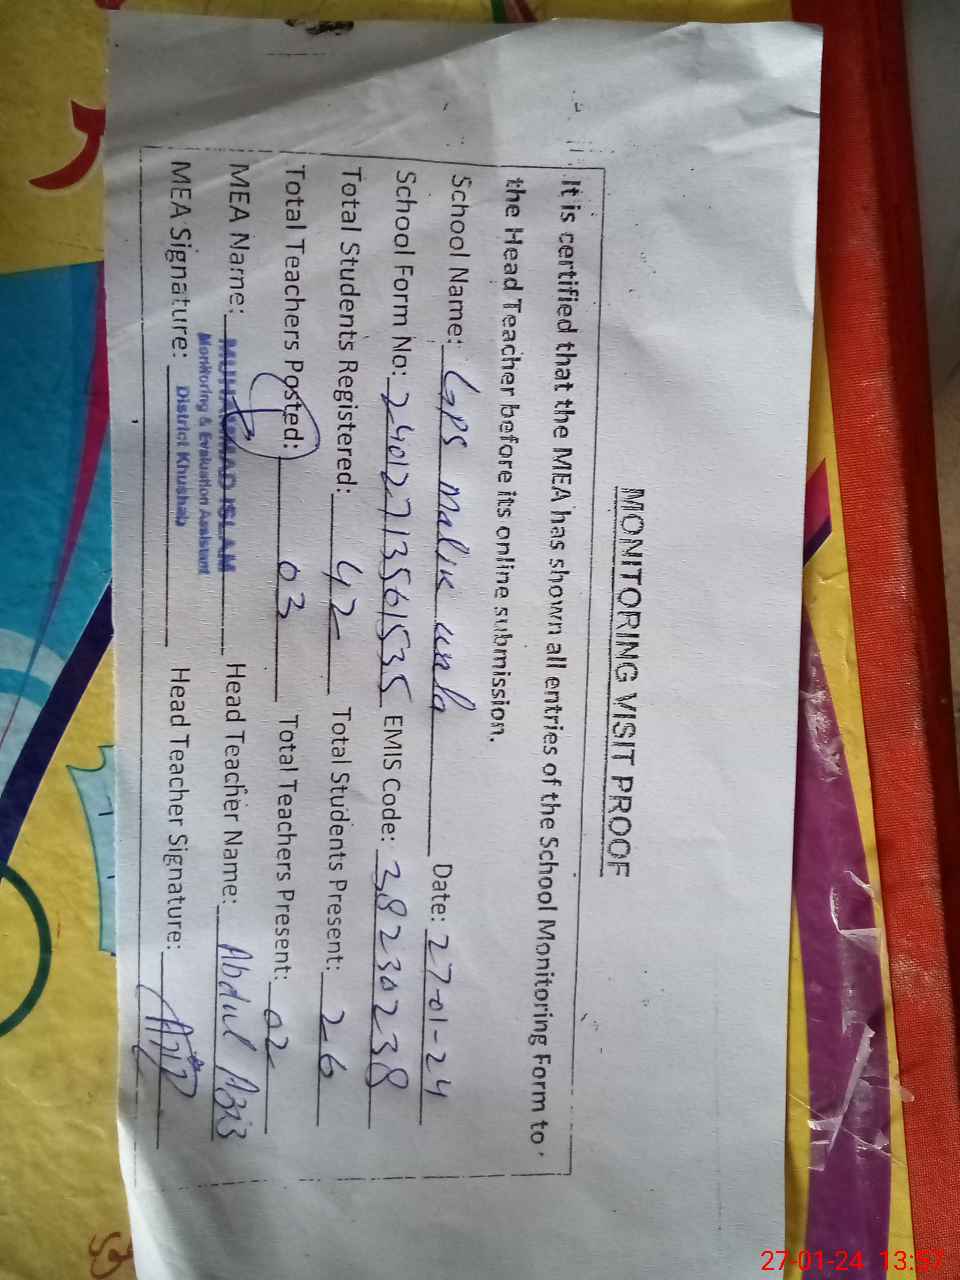 MONITORING VISIT PROOF
It is certified that the MEA has shown all entries of the School Monitoring Form to
the Head Teacher before its online submission.
School Name: GPS Malik wala Date: 27-01-24
School Form No: 24012713561535 EMIS Code: 38230238
Total Students Registered: 42 Total Students Present: 26
Total Teachers Posted: 03 Total Teachers Present: 02
MEA Name: MUHAMMAD ISLAM Head Teacher Name: Abdul Aziz
Monitoring & Evaluation Assistant
District Khushab
MEA Signature: Head Teacher Signature:
27-01-24 13:57